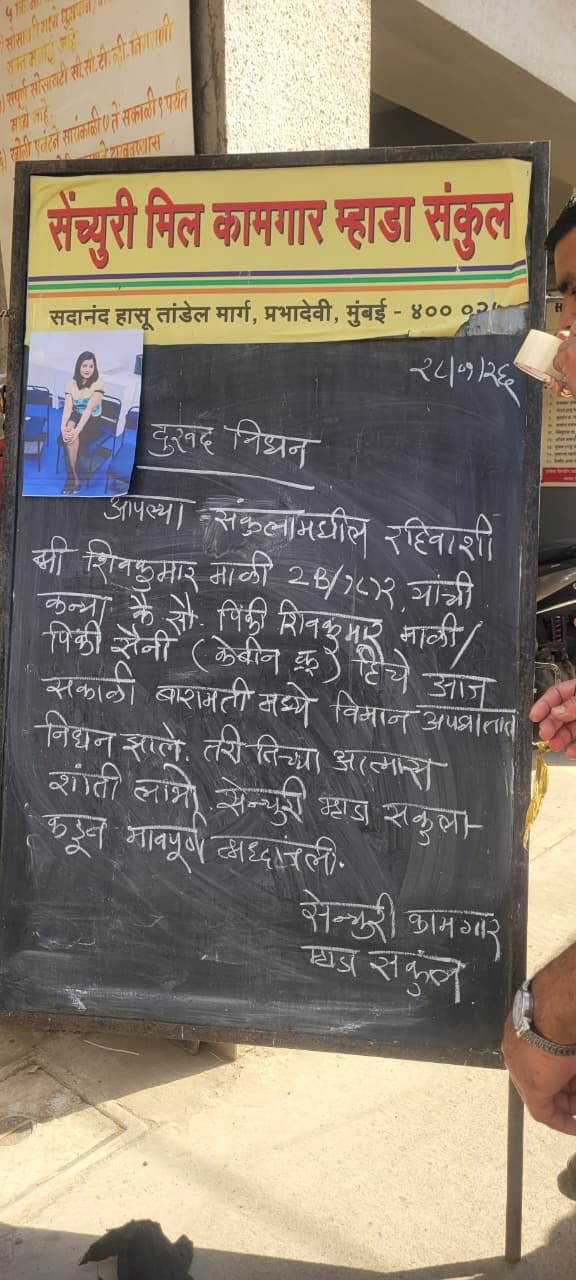 सोसायटी मध्ये धूम्रपान
सक्त मनाई आहे.
संपूर्ण सोसायटी सी.सी.टी.व्ही. निगराणी
मध्ये आहे.
सायंकाळी ७ ते सकाळी ९ पर्यंत
सेंच्युरी मिल कामगार म्हाडा संकुल
सदानंद हासू तांडेल मार्ग, प्रभादेवी, मुंबई - ४०० ०२५
२८/०१/२६
दुखद निधन
आपल्या संकुलामधील रहिवाशी
श्री शिवकुमार माळी 2B/१८१२, यांची
कन्या कै. सौ. पिंकी शिवकुमार माळी/
पिंकी सैनी (केबीन क्रू) हिचे आज
सकाळी बारामती मध्ये विमान अपघातात
निधन झाले. तरी तिच्या आत्मास
शांती लाभो. सेन्चुरी म्हाडा सकुला-
कडून भावपूर्ण श्रध्दांजली.
सेन्चुरी कामगार
म्हाडा सकुल